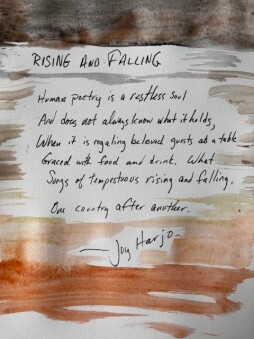 RISING AND FALLING
Human poetry is a restless soul
And does not always know what it holds,
When it is regaling beloved guests at a table
Graced with food and drink. What
Songs of tempestuous rising and falling.
One country after another.
— Joy Harjo —